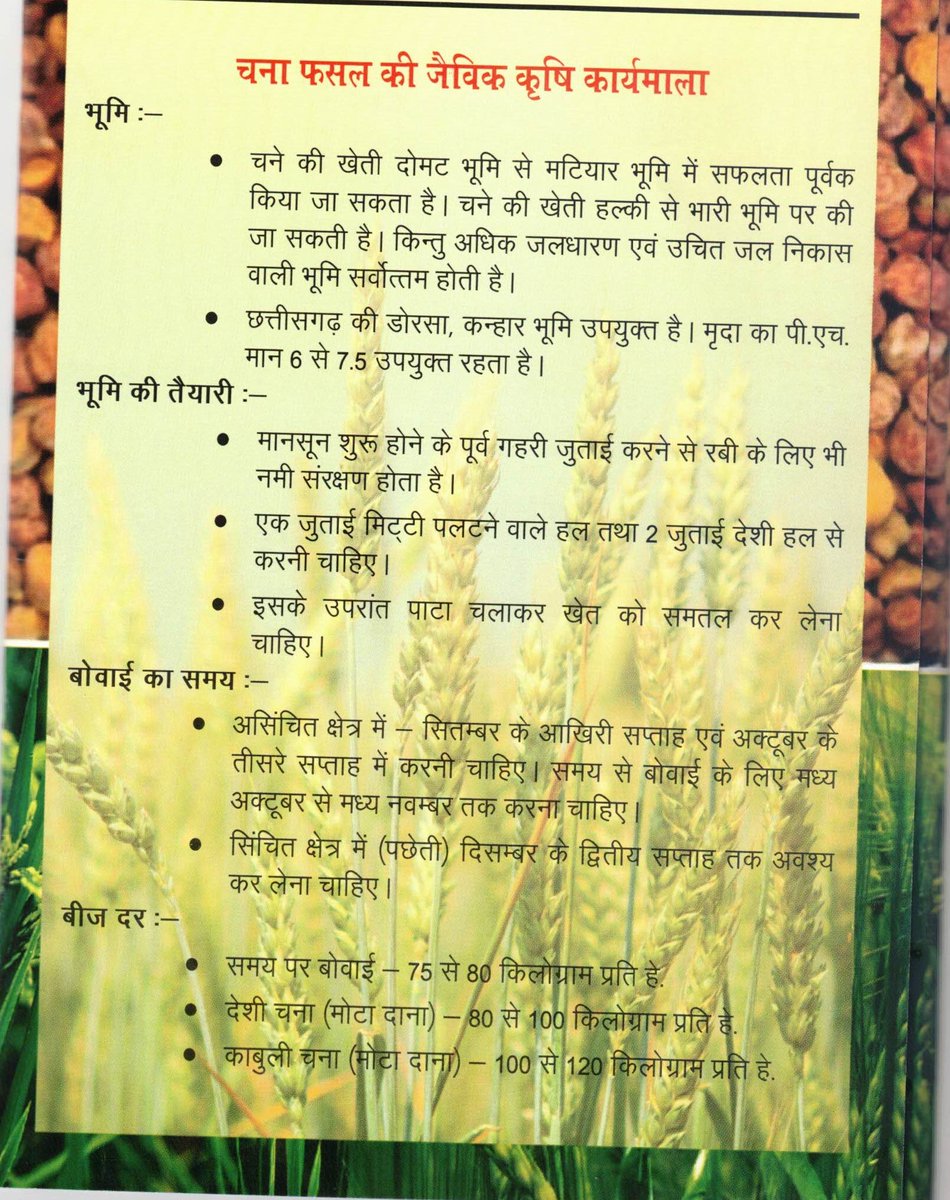 चना फसल की जैविक कृषि कार्यमाला
भूमि :–
• चने की खेती दोमट भूमि से मटियार भूमि में सफलता पूर्वक
किया जा सकता है। चने की खेती हल्की से भारी भूमि पर की
जा सकती है। किन्तु अधिक जलधारण एवं उचित जल निकास
वाली भूमि सर्वोत्तम होती है।
• छत्तीसगढ़ की डोरसा, कन्हार भूमि उपयुक्त है। मृदा का पी.एच.
मान 6 से 7.5 उपयुक्त रहता है।
भूमि की तैयारी :–
• मानसून शुरू होने के पूर्व गहरी जुताई करने से रबी के लिए भी
नमी संरक्षण होता है।
• एक जुताई मिट्टी पलटने वाले हल तथा 2 जुताई देशी हल से
करनी चाहिए।
• इसके उपरांत पाटा चलाकर खेत को समतल कर लेना
चाहिए।
बोवाई का समय :–
• असिंचित क्षेत्र में – सितम्बर के आखिरी सप्ताह एवं अक्टूबर के
तीसरे सप्ताह में करनी चाहिए। समय से बोवाई के लिए मध्य
अक्टूबर से मध्य नवम्बर तक करना चाहिए।
• सिंचित क्षेत्र में (पछेती) दिसम्बर के द्वितीय सप्ताह तक अवश्य
कर लेना चाहिए।
बीज दर :–
• समय पर बोवाई – 75 से 80 किलोग्राम प्रति हे.
• देशी चना (मोटा दाना) – 80 से 100 किलोग्राम प्रति हे.
• काबुली चना (मोटा दाना) – 100 से 120 किलोग्राम प्रति हे.